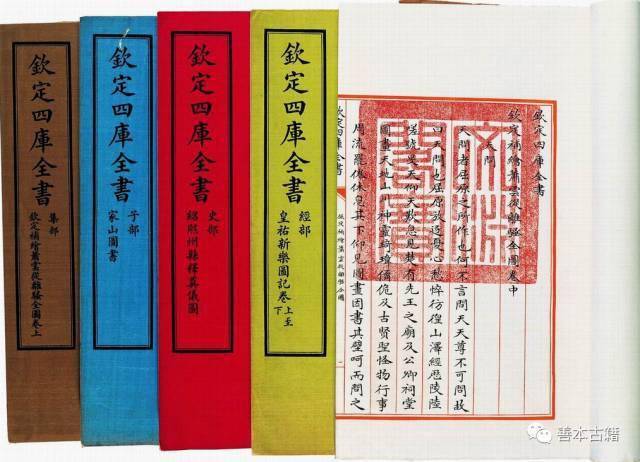 欽定四庫全書
欽定補繪蕭雲從離騷全圖卷中
天問
天問者屈原之所作也何不言問天天尊不可問故
曰天問也屈原放逐憂心愁悴彷徨山澤經歷陵陸
嗟號旻天仰天歎息見楚有先王之廟及公卿祠堂
圖畫天地山川神靈琦瑋僪佹及古賢聖怪物行事
周流罷倦休息其下仰見圖畫因書其壁呵而問之
欽定四庫全書
欽定補繪蕭雲從離騷全圖
文淵閣寶
欽定四庫全書
經部
皇祐新樂圖記卷上至下
欽定四庫全書
史部
紹熙州縣釋奠儀圖
欽定四庫全書
子部
家山圖書
欽定四庫全書
集部
欽定補繪蕭雲從離騷全圖卷上
善本古籍